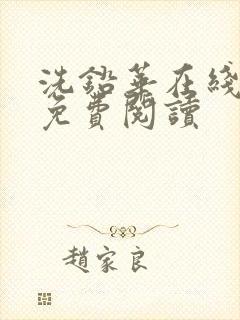 洗鉛華在綫
免費閱讀
趙家良